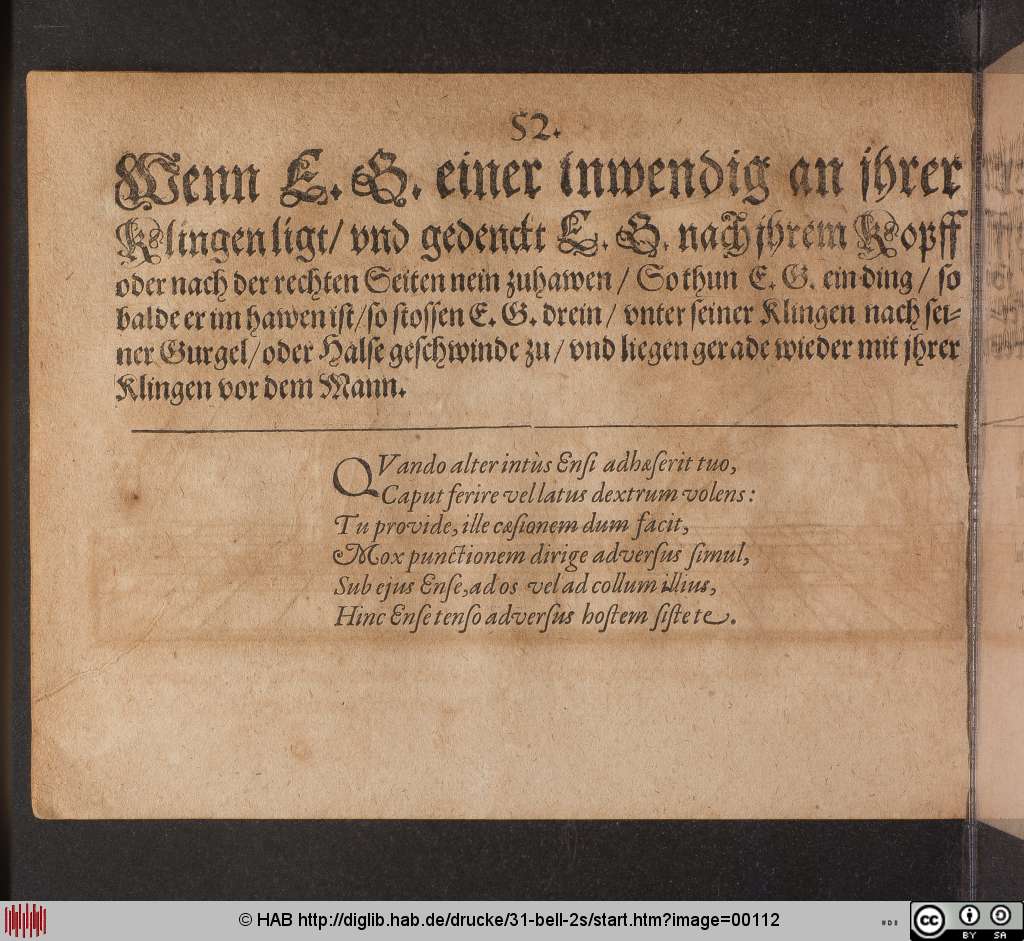 52.
Wenn E. G. einer inwendig an jhrer
Klingen ligt/ vnd gedenckt E. G. nach jhrem Kopff
oder nach der rechten Seiten nein zuhawen / So thun E. G. ein ding / so
balde er im hawen ist / so stossen E. G. drein / vnter seiner Klingen nach sei-
ner Gurgel / oder Halse geschwinde zu / vnd liegen gerade wieder mit jhrer
Klingen vor dem Mann.
QVando alter intùs Ensi adhæserit tuo,
Caput ferire vel latus dextrum volens:
Tu provide, ille cæsionem dum facit,
Mox punctionem dirige adversus simul,
Sub ejus Ense, ad os vel ad collum illius,
Hinc Ense tenso adversus hostem siste te.
© HAB http://diglib.hab.de/drucke/31-bell-2s/start.htm?image=00112
cc BY SA